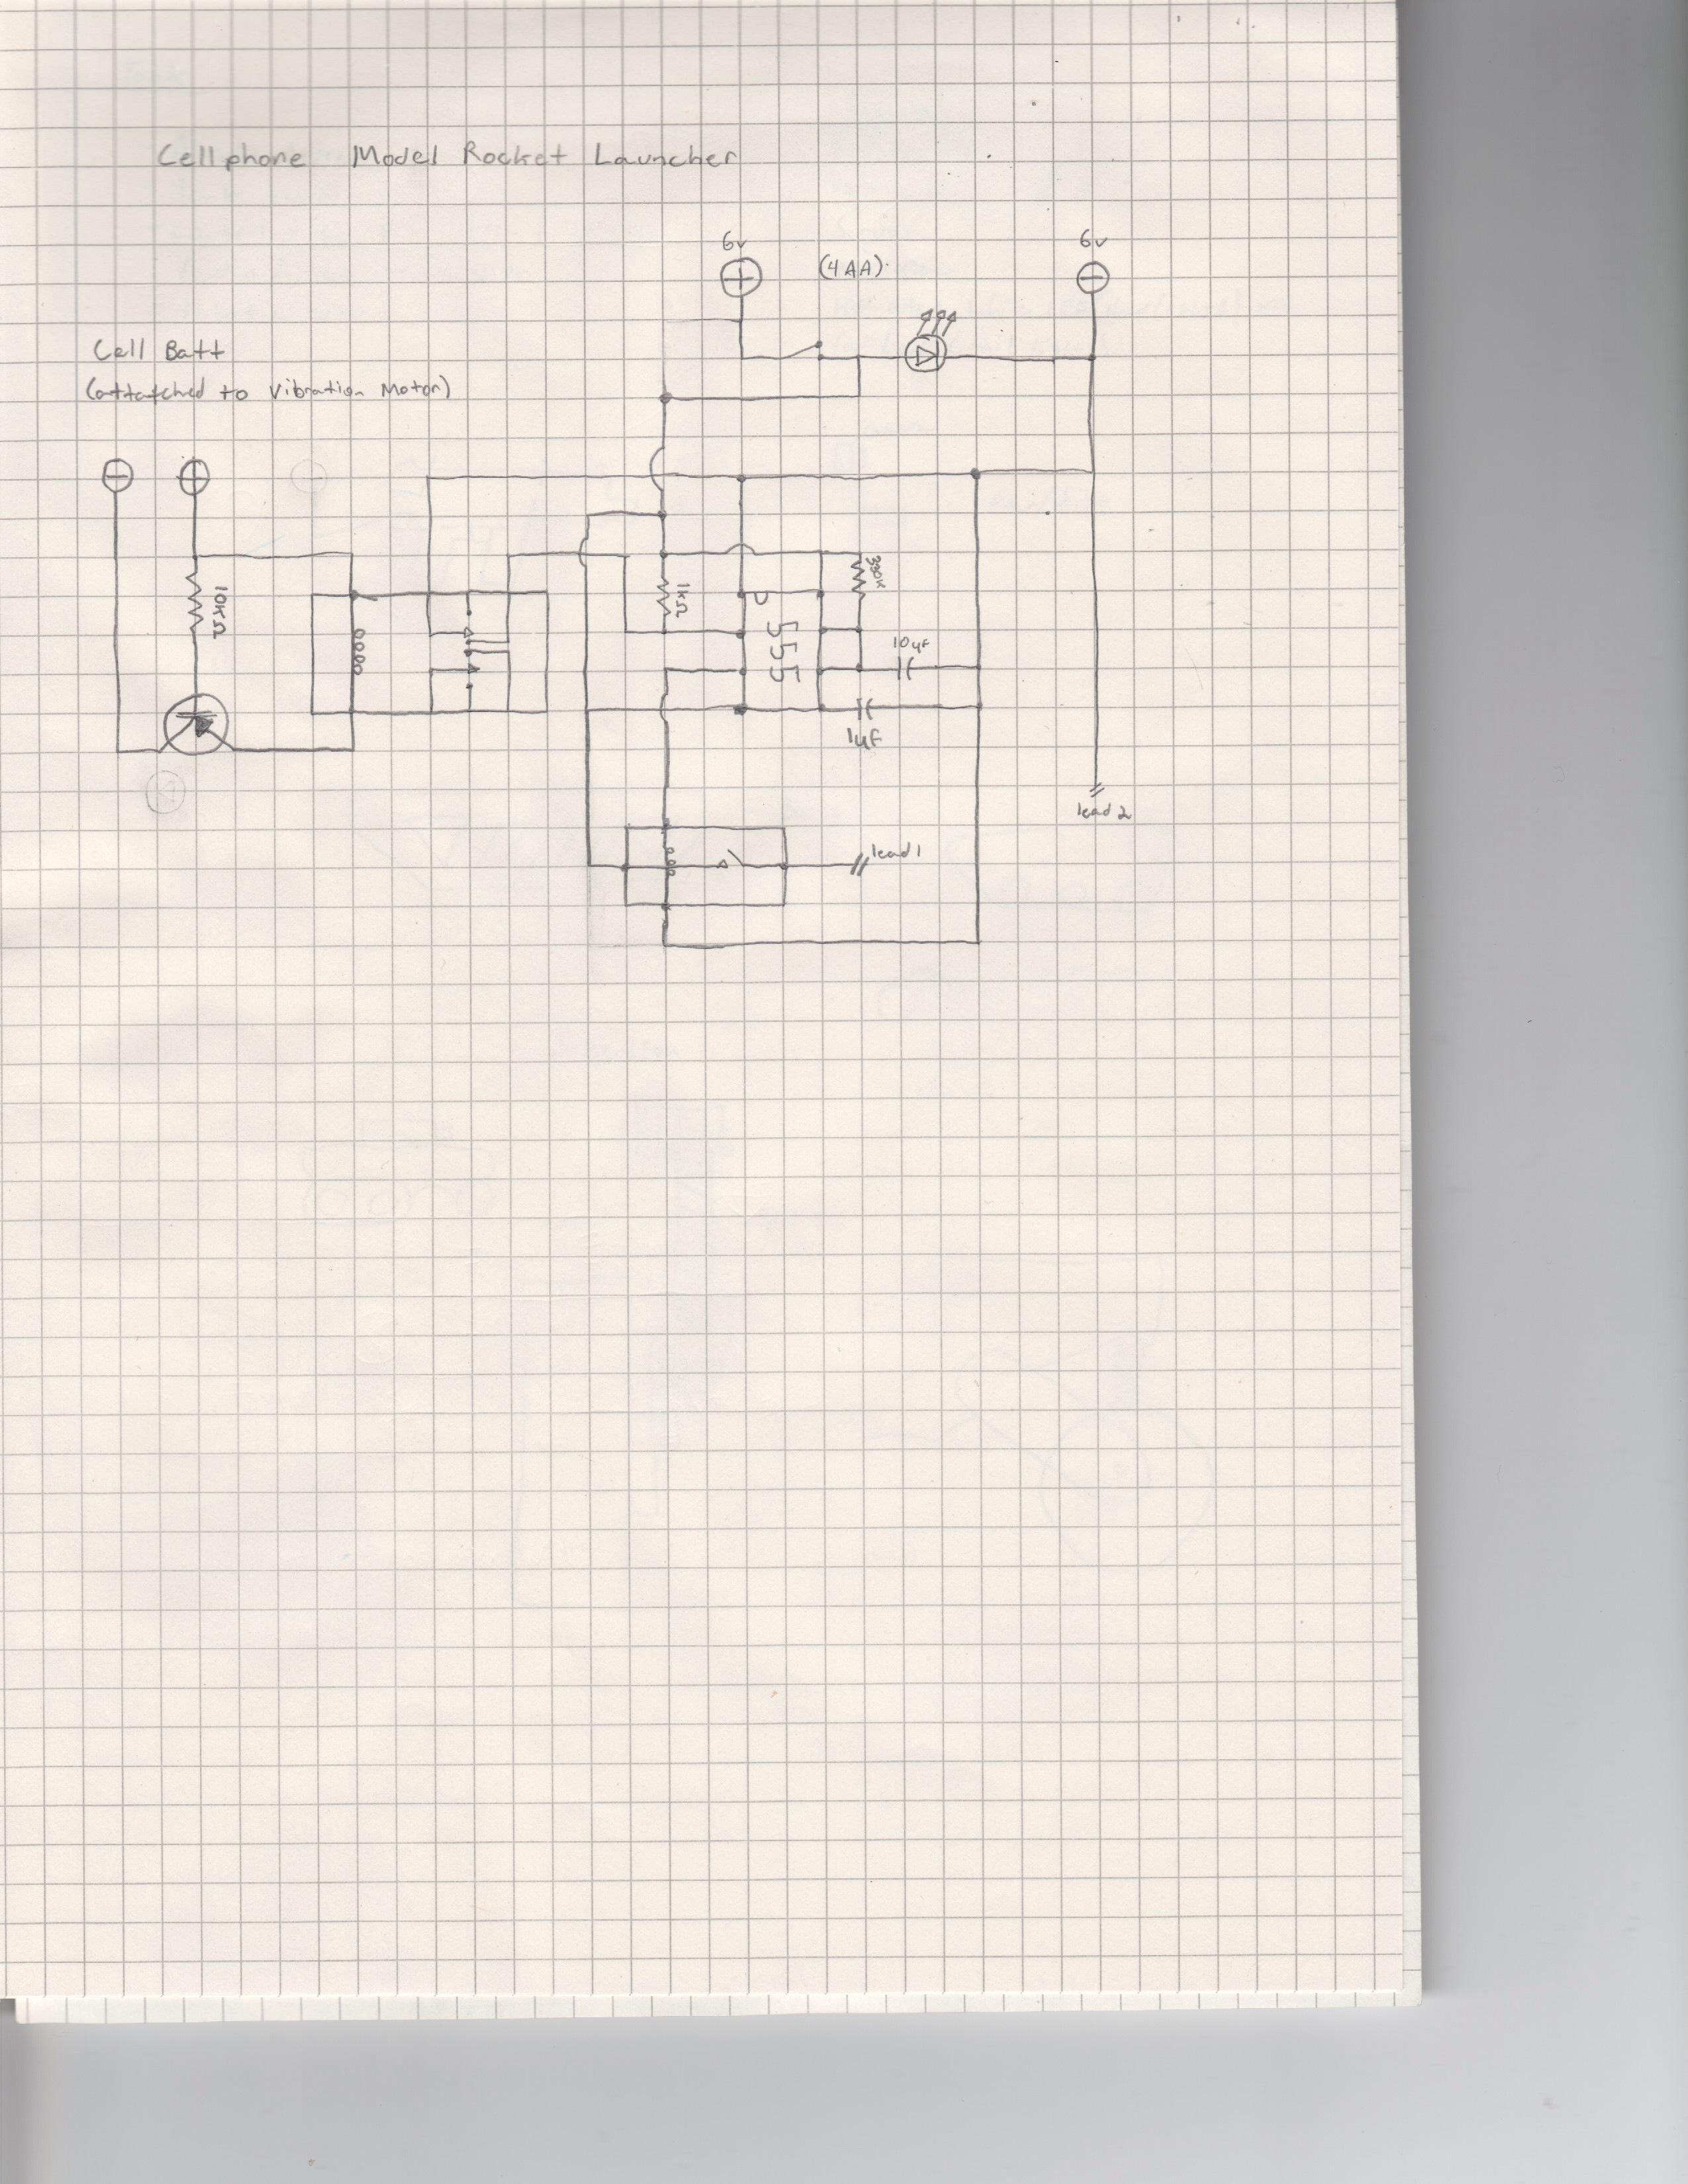 Cellphone Model Rocket Launcher
6v
(4AA)
6v
Cell Batt
(attatched to Vibration Motor)
10KΩ
1kΩ
330K
555
10uf
1uf
lead 2
lead 1